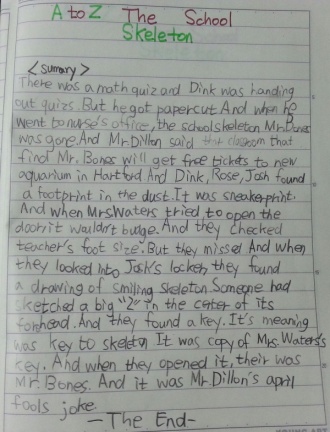 A to Z The School
Skeleton
<sumary>
There was a math quiz and Dink was handing
out quizs. But he got papercut And when he
went to nurse's office, the school skeleton Mr.Bones
was gone. And Mr.Dillon said that classroom that
find Mr. Bones will get free tickets to new
aquarium in Hartford And Dink, Rose, Josh found
a footprint in the dust. It was sneakerprint.
And when Mrs.Waters tried to open the
door it wouldn't budge. And they checked
teacher's foot size. But they missed And when
they looked into Josh's locker, they found
a drawing of smiling skeleton Someone had
sketched a big "2" in the center of its
forhead. And they found a key. It's meaning
was key to skeleton It was copy of Mrs. Waters's
key. And when they opened it, their was
Mr. Bones. And it was Mr.Dillon's april
fools joke
—The End—